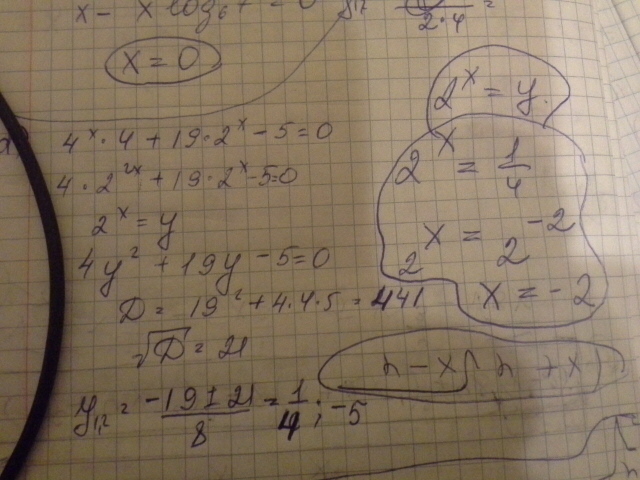 x = 0
4^x · 4 + 19 · 2^x - 5 = 0
4 · 2^{2x} + 19 · 2^x - 5 = 0
2^x = y
4y² + 19y - 5 = 0
D = 19² + 4 · 4 · 5 = 441
√D = 21
y₁,₂ = (-19 ± 21)/8 = 1/4 ; -5
2^x = y
2^x = 1/4
2^x = 2^{-2}
x = -2